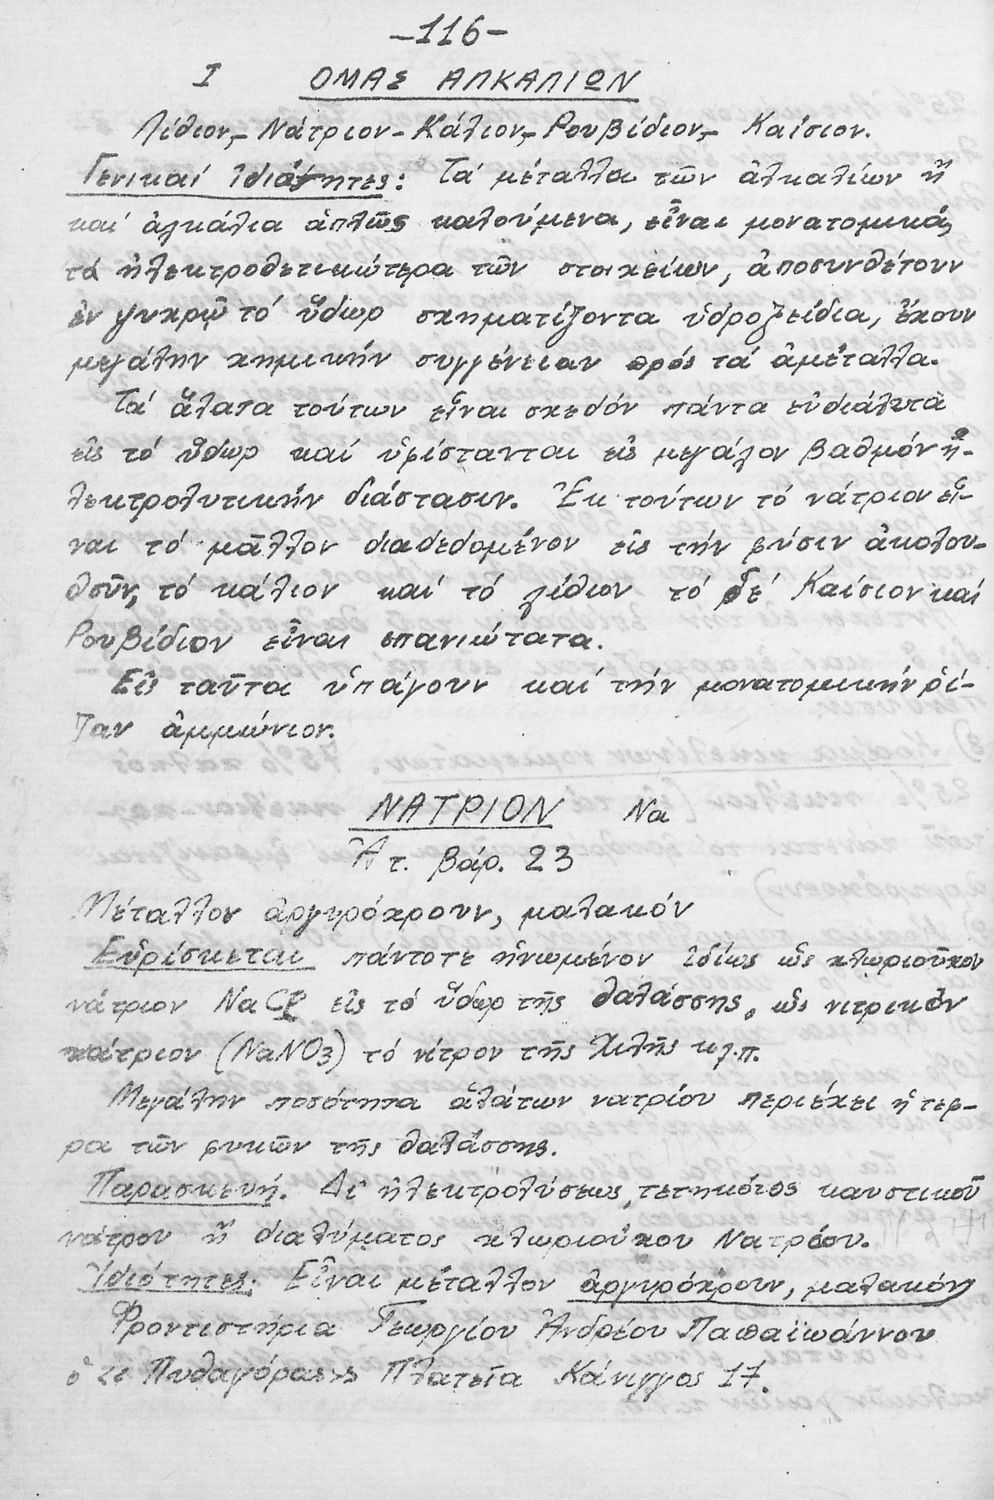 -116-
I ΟΜΑΣ ΑΛΚΑΛΙΩΝ
Λίθιον,- Νάτριον- Κάλιον,- Ρουβίδιον,- Καίσιον.
Γενικαί ἰδιότητες: Τά μέταλλα τῶν ἀλκαλίων ἤ
καί ἀλκάλια ἁπλῶς καλούμενα, εἶναι μονατομικά,
τά ἠλεκτροθετικώτερα τῶν στοιχείων, ἀποσυνθέτουν
ἐν ψυχρῷ τό ὕδωρ σχηματίζοντα ὑδροξείδια, ἔχουν
μεγάλην χημικήν συγγένειαν πρός τά ἀμέταλλα.
Τά ἅλατα τούτων εἶναι σχεδόν πάντα εὐδιάλυτα
εἰς τό ὕδωρ καί ὑφίστανται εἰς μεγάλον βαθμόν ἠ-
λεκτρολυτικήν διάστασιν. Ἐκ τούτων τό νάτριον εἶ-
ναι τό μᾶλλον διαδεδομένον εἰς τήν φύσιν ἀκολου-
θοῦν, τό κάλιον καί τό λίθιον τό δέ Καίσιον καί
Ρουβίδιον εἶναι σπανιώτατα.
Εἰς ταῦτα ὑπάγουν καί τήν μονατομικήν ρί-
ζαν ἀμμώνιον.
ΝΑΤΡΙΟΝ Na
Ἀτ. βάρ. 23
Μέταλλον ἀργυρόχρουν, μαλακόν
Εὑρίσκεται πάντοτε ἡνωμένον ἰδίως ὡς χλωριοῦχον
νάτριον NaCl εἰς τό ὕδωρ τῆς θαλάσσης, ὡς νιτρικόν
νάτριον (NaNO3) τό νίτρον τῆς Χιλῆς κ.λ.π.
Μεγάλην ποσότητα ἁλάτων νατρίου περιέχει ἡ τέφ-
ρα τῶν φυκῶν τῆς θαλάσσης.
Παρασκευή. Δι' ἠλεκτρολύσεως τετηκότος καυστικοῦ
νάτρου ἤ διαλύματος χλωριούχου Νατρίου.
Ἰδιότητες: Εἶναι μέταλλον ἀργυρόχρουν, μαλακόν
Φροντιστήρια Γεωργίου Ἀνδρέου Παπαϊωάννου
ὁ << Πυθαγόρας >> Πλατεῖα Κάνιγγος 17.